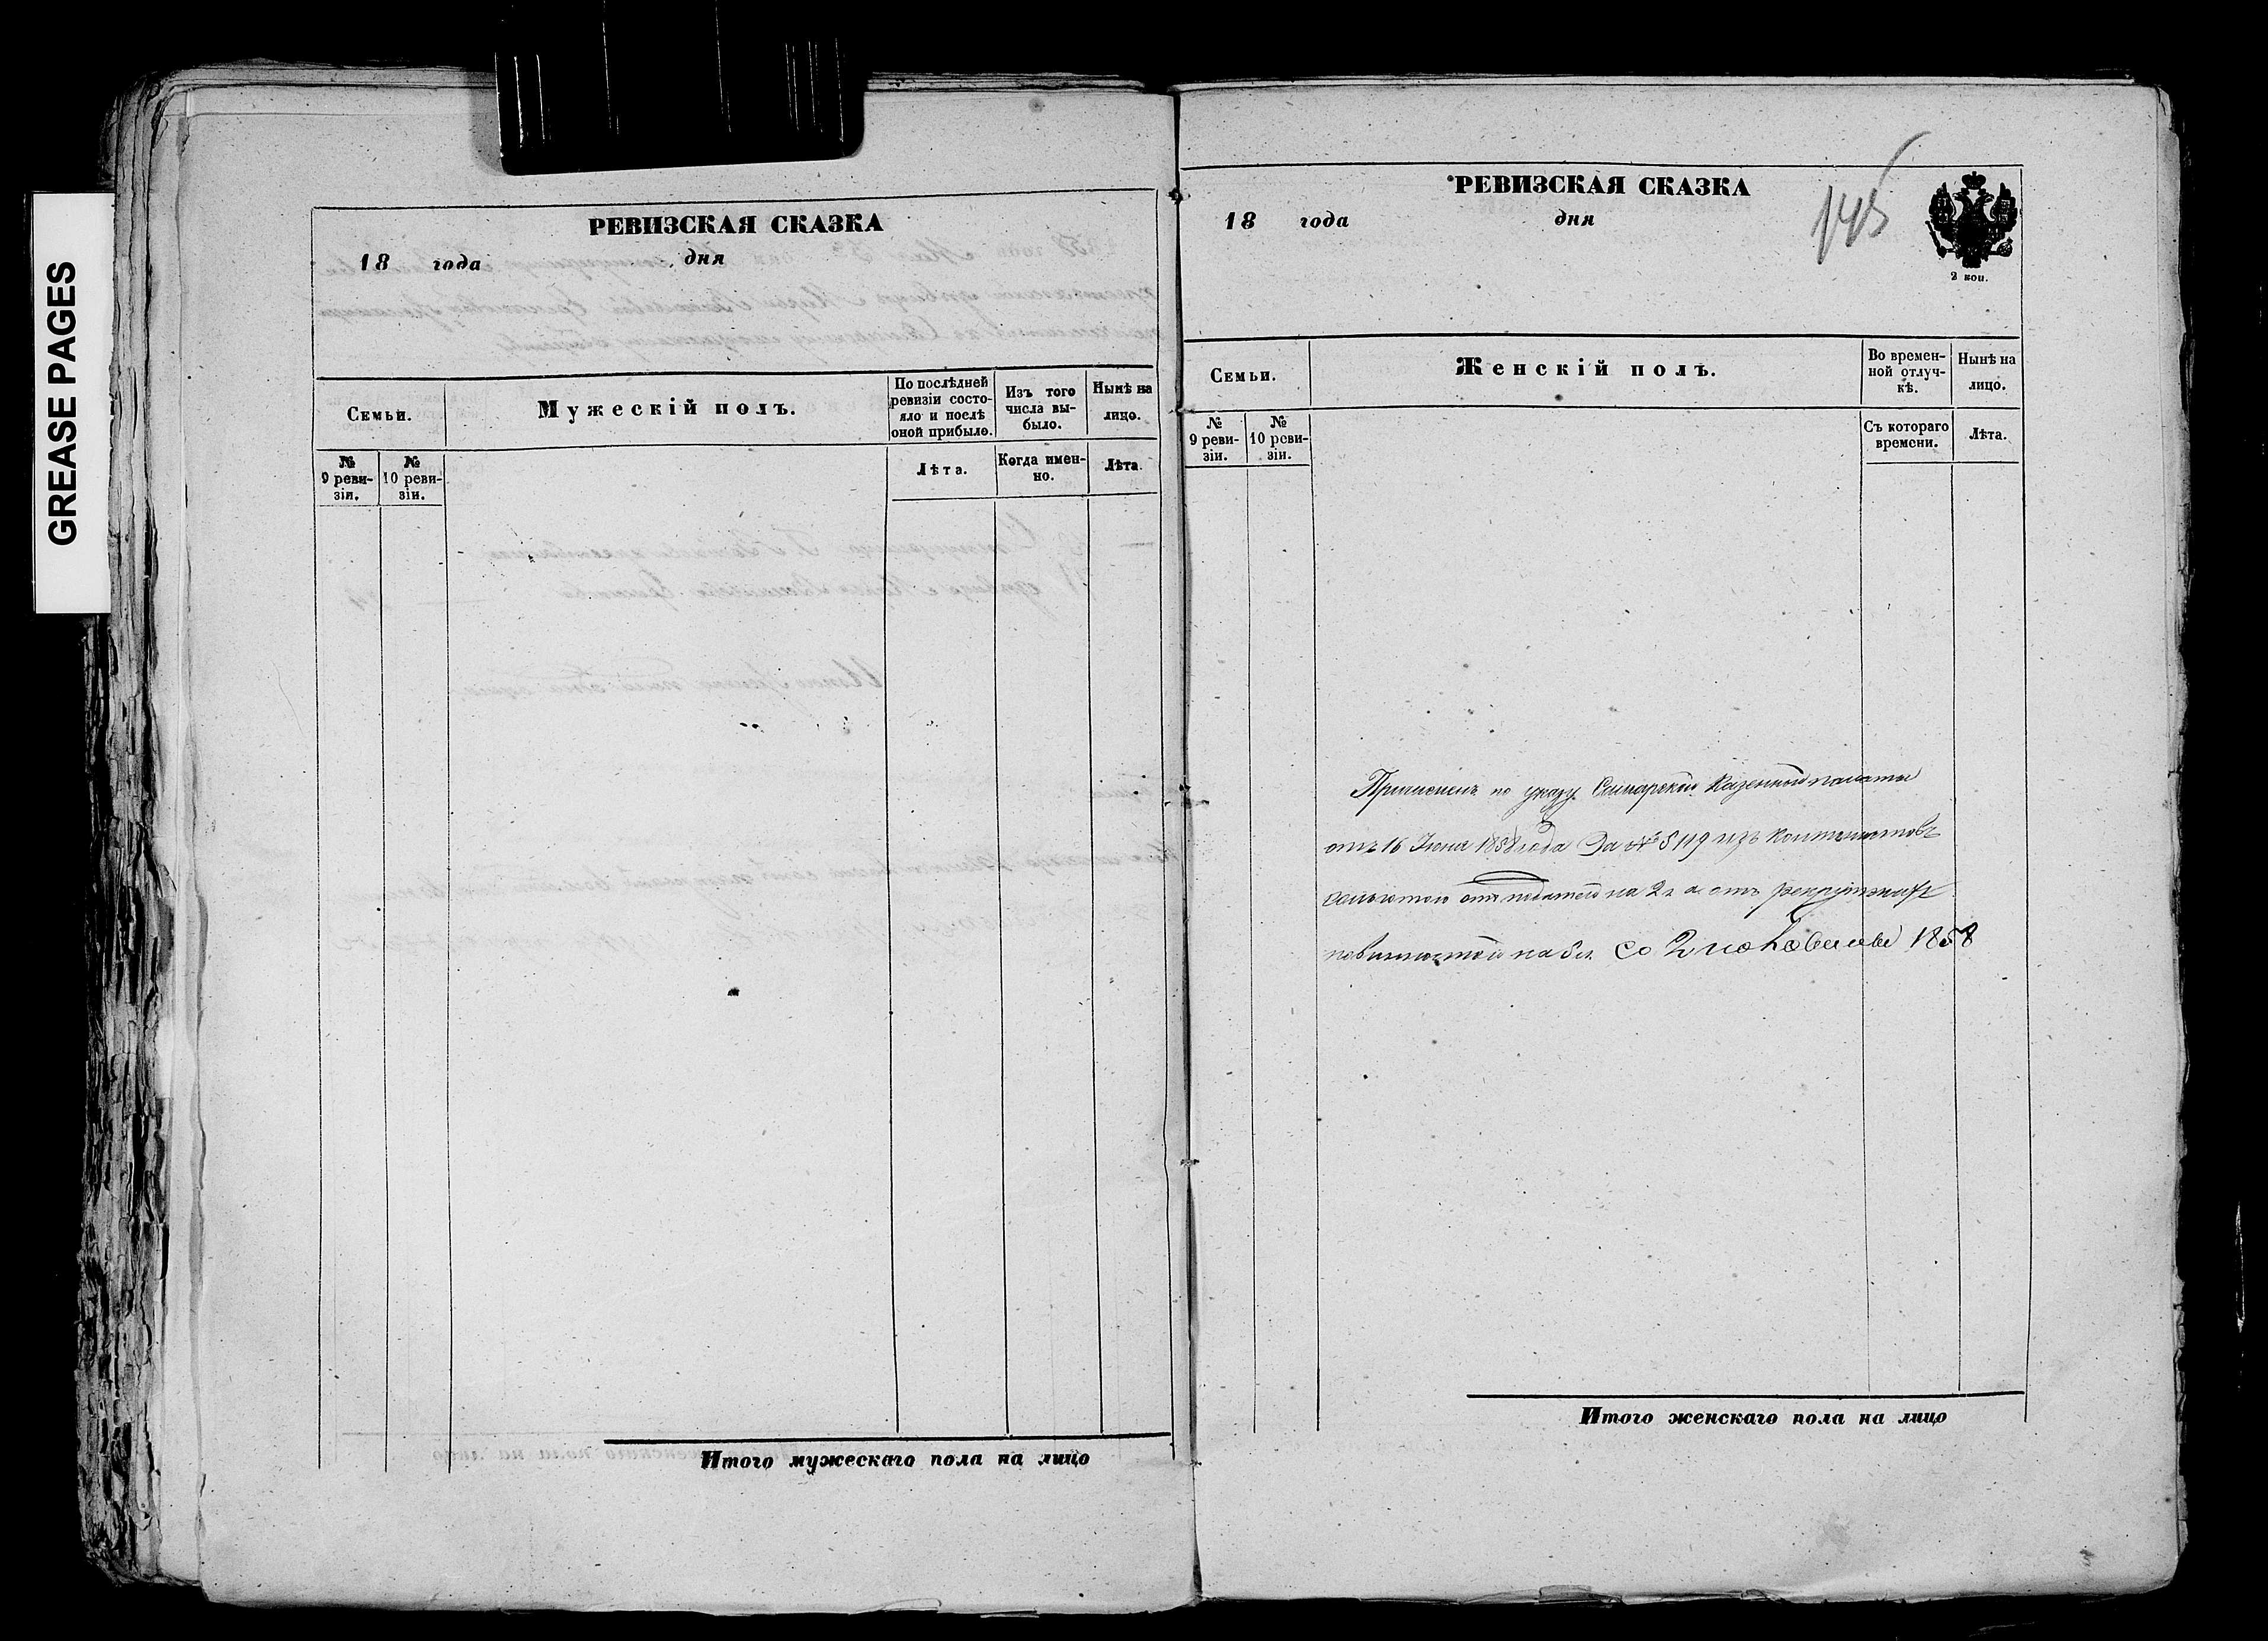 GREASE PAGES
РЕВИЗСКАЯ СКАЗКА
18 года дня
Семьи.
Мужескій полъ.
По послѣдней ревизіи состо-
яло и послѣ
оной прибыло.
Изъ того
числа вы-
было.
Нынѣ на
лицо.
№
9 реви-
зіи.
№
10 реви-
зіи.
Лѣта.
Когда имен-
но.
Лѣта.
Итого мужескаго пола на лицо
РЕВИЗСКАЯ СКАЗКА
18 года дня
145
2 коп.
Семьи.
Женскій полъ.
Во времен-
ной отлуч-
кѣ.
Нынѣ на
лицо.
№
9 реви-
зіи.
№
10 реви-
зіи.
Съ котораго
времени.
Лѣта.
Причисленъ по указу Самарской Казенной палаты
отъ 16 Іюня 1858 года За № 5119 изъ
льготою отъ податей на 2 г. а отъ рекрутской
повинностей на 3 г. со 2 половины 1858
Итого женскаго пола на лицо